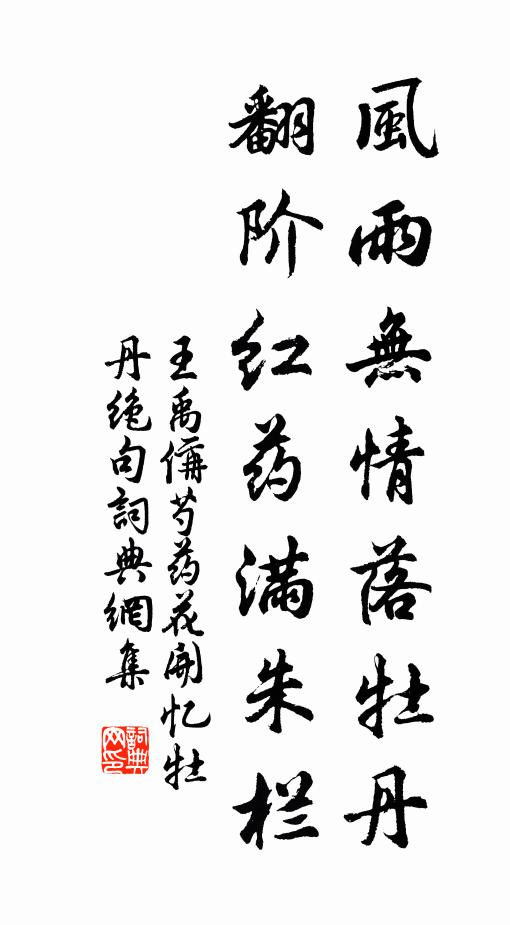 風雨無情落牡丹
翻阶红药满朱栏
王禹偁芍药花开忆牡
丹绝句詞典網集
詞典
网印